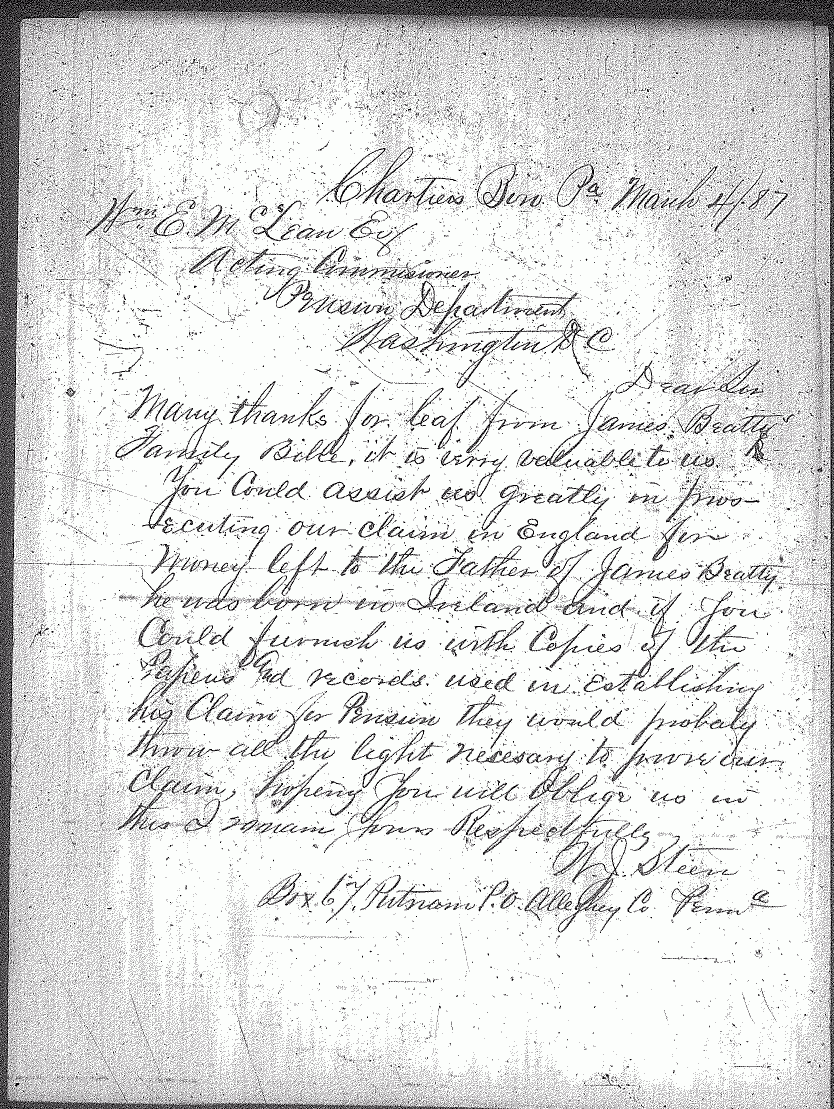 Chartiers Boro. Pa March 4/87
Wm E. McLean Esq
Acting Commisioner
Pension Department
Washington D C
Dear Sir
Many thanks for leaf from James Beatty's
Family Bible, it is verry valuable to us
You Could assist us greatly in pros-
ecuting our claim in England for
Money left to the Father of James Beatty
he was born in Ireland and if you
Could furnish us with Copies of the
Papers and records used in Establishing
his Claim for Pension they would probaly
throw all the light necesary to prove our
Claim, hopeing You will Oblige us in
this I remain yours Respectfully
W J. Steen
Box 67. Putnam P.O. Allegheny Co Penna